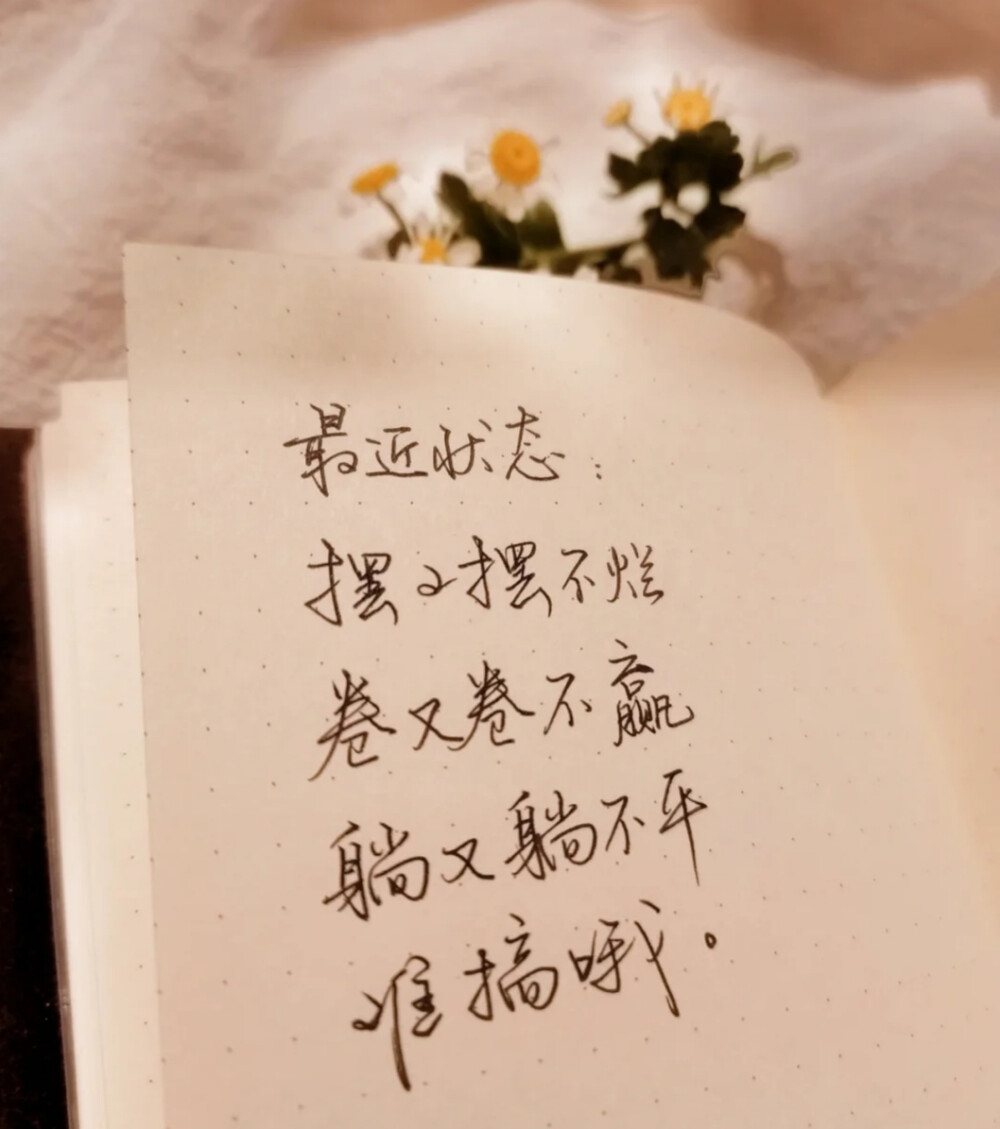 最近状态：
摆又摆不烂
卷又卷不赢
躺又躺不平
难搞哦。